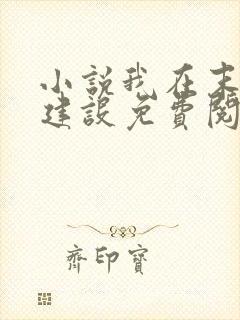 小説我在末
建設免費閱
齊印寶